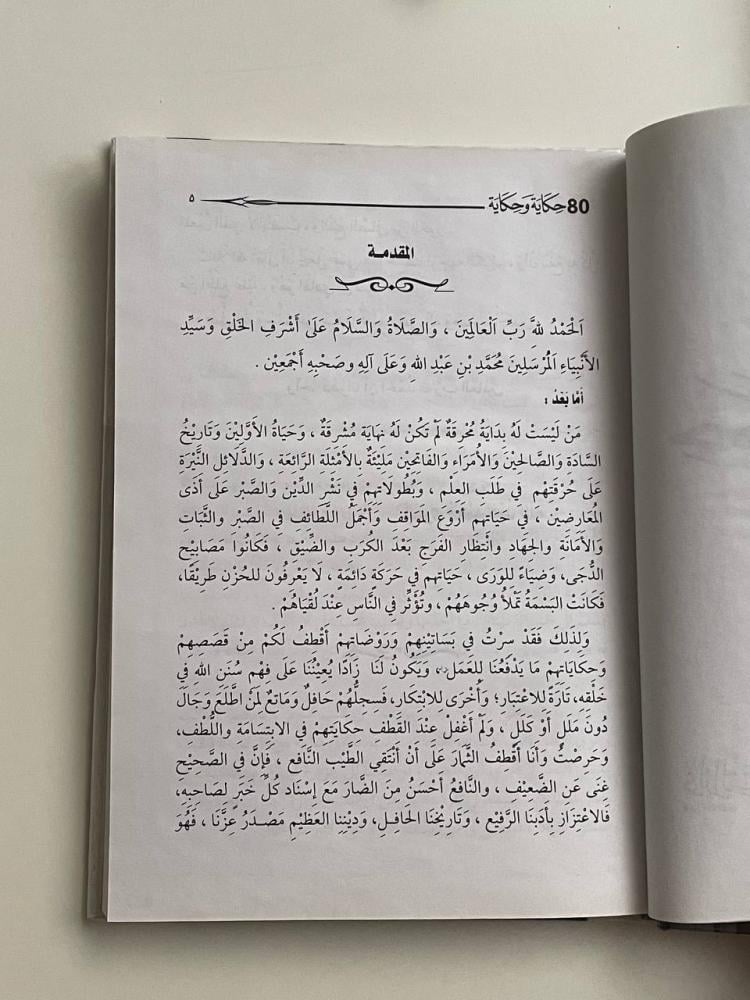 80 حِكَايَة وَحِكَايَة ٥
المقدمـة
اَلْحَمْدُ للهِ رَبِّ اَلْعَالَمِينَ ، وَالصَّلَاةُ وَالسَّلَامُ عَلَىٰ أَشْرَفِ الخَلْقِ وَسَيِّدِ
الأَنْبِيَاءِ اَلْمُرْسَلِينَ مُحَمَّدِ بْنِ عَبْدِ اللهِ وَعَلَى آلِهِ وصَحْبِهِ أَجْمَعِيْن .
أَمَّا بَعْدُ :
مَنْ لَيْسَتْ لَهُ بِدَايَةٌ مُحْرِقَةٌ لَمْ تَكُنْ لَهُ نِهَايَة مُشْرِقَةٌ ، وَحَيَاةُ الأَوَّلِيْنَ وَتَارِيْخُ
السَّادَةِ وَالصَّالِحِيْنَ وَالأُمَرَاء وَالفَاتِحِيْن مَلِيْئَةٌ بِالأَمْثِلَةِ الرَّائِعَةِ ، وَالدَّلَائِل النَّيِّرَة
عَلَى حُرْقَتِهِمْ فِي طَلَبِ العِلْم ، وَبُطُولَاتِهِمْ فِي نَشْرِ الدِّيْن وَالصَّبْر عَلَى أَذَى
المُعَارِضِيْن ، فِي حَيَاتِهِم أَرْوَعُ المَوَاقِفِ وَأَجْمَلُ اللَّطَائِف فِي الصَّبْرِ وَالثَّبَاتِ
وَالأَمَانَةِ والجِهَادِ وانْتِظَارِ الفَرَجِ بَعْدَ الكُرَبِ وَالضِّيْق ، فَكَانُوا مَصَابِيْح
الدُّجَى، وَضِيَاءً لِلوَرَى ، حَيَاتِهِم فِي حَرَكَة دَائِمَةٍ ، لَا يَعْرِفُونَ للحُزْنِ طَرِيْقًا،
فَكَانَتْ البَسْمَةُ تَمْلأُ وُجُوهَهُمْ ، وتُؤَثِّر فِي النَّاسِ عِنْدَ لُقْيَاهُمْ .
وَلِذَلِكَ فَقَدْ سِرْتُ فِي بَسَاتِيْنِهِمْ وَرَوْضَاتِهِمْ أَقْطِفُ لَكُمْ مِنْ قَصَصِهِمْ
وَحِكَايَاتِهِمْ مَا يَدْفَعُنَا لِلعَمَلِ، وَيَكُونُ لَنَا زَادًا يُعِيْنُنَا عَلَى فِهْمِ سُنَنِ الله فِي
خَلْقِه، تَارَةً لِلاعْتِبَار؛ وَأُخْرَى لِلابْتِكَار، فَسِجِلُّهُمْ حَافِلٌ وَمَاتِعٌ لِمَنْ اطَّلَعَ وَجَالَ
دُونَ مَلَلٍ أَوْ كَلَلٍ ، وَلَمْ أَغْفِلْ عِنْدَ القَطْفِ حِكَايَتِهِمْ فِي الابْتِسَامَةِ واللُّطْفِ،
وَحَرِصْتُ وَأَنَا أَقْطِفُ الثِّمَارَ عَلَى أَنْ أَنْتَقِيَ الطَّيِّب النَّافِع ، فَإِنَّ فِي الصَّحِيْحِ
غِنَى عَنِ الضَّعِيْفِ ، والنَّافِعُ أَحْسَنُ مِنَ الضَّارِ مَعَ إِسْنَاد كُلِّ خَبَرٍ لِصَاحِبِهِ،
فَالاعْتِزَازِ بِأَدَبِنَا الرَّفِيْعِ ، وَتَارِيْخِنَا الحَافِـلِ، وَدِيْنِنَا العَظِيْمِ مَصْـدَرُ عِزِّنَا ، فَهُوَ